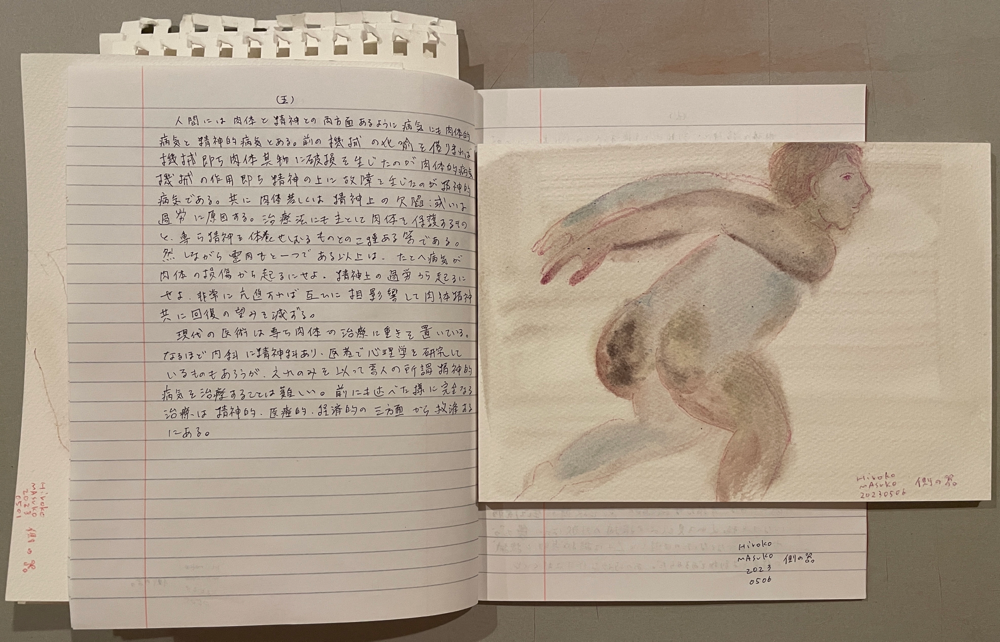 (五)
人間には肉体と精神との両方面あるように病気にも肉体的
病気と精神的病気とある。前の機械の比喩を借りれば
機械即ち肉体其物に破損を生じたのが肉体的病気
機械の作用即ち精神の上に故障を生じたのが精神的
病気である。共に肉体若しくは精神上の欠陥、或いは
過労に原因する。治療法にも主として肉体を保護するもの
と、専ら精神を休養せしむるものとの二種ある筈である。
然しながら霊肉もと一つである以上は、たとへ病気が
肉体の損傷から起るにせよ、精神上の過労から起るに
せよ、非常に亢進すれば互ひに相影響して肉体精神
共に回復の望みを減ずる。
現代の医術は専ら肉体の治療に重きを置いている。
なるほど内科に精神科あり、医者で心理学を研究して
いるものもあろうが、それのみを以って吾人の所謂精神的
病気を治療することは難しい。前にも述べた様に完全なる
治療は精神的、医療的、経済的の三方面から救済する
にある。
Hiroko
MASuko
2023
0501
側の器
Hiroko
MASuko
20230506 側の器
Hiroko
MASuko 側の器
2023
0506